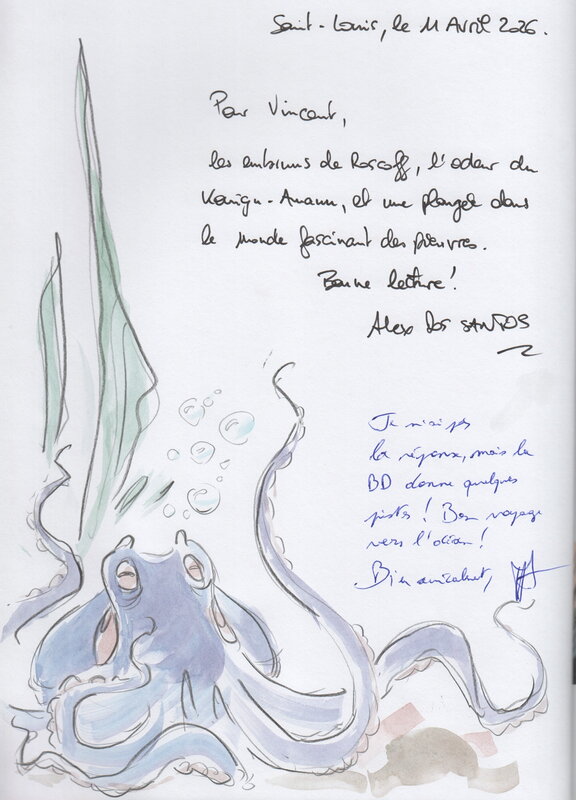 Saint-Louis, le 11 Avril 2026.
Pour Vincent,
les embruns de Roscoff, l'odeur du
Kouign-Amann, et une plongée dans
le monde fascinant des pieuvres.
Bonne lecture !
Alexe Dos SANTOS
Je n'ai pas
la réponse, mais la
BD donne quelques
pistes ! Bon voyage
vers l'océan !
Bien amicalement,